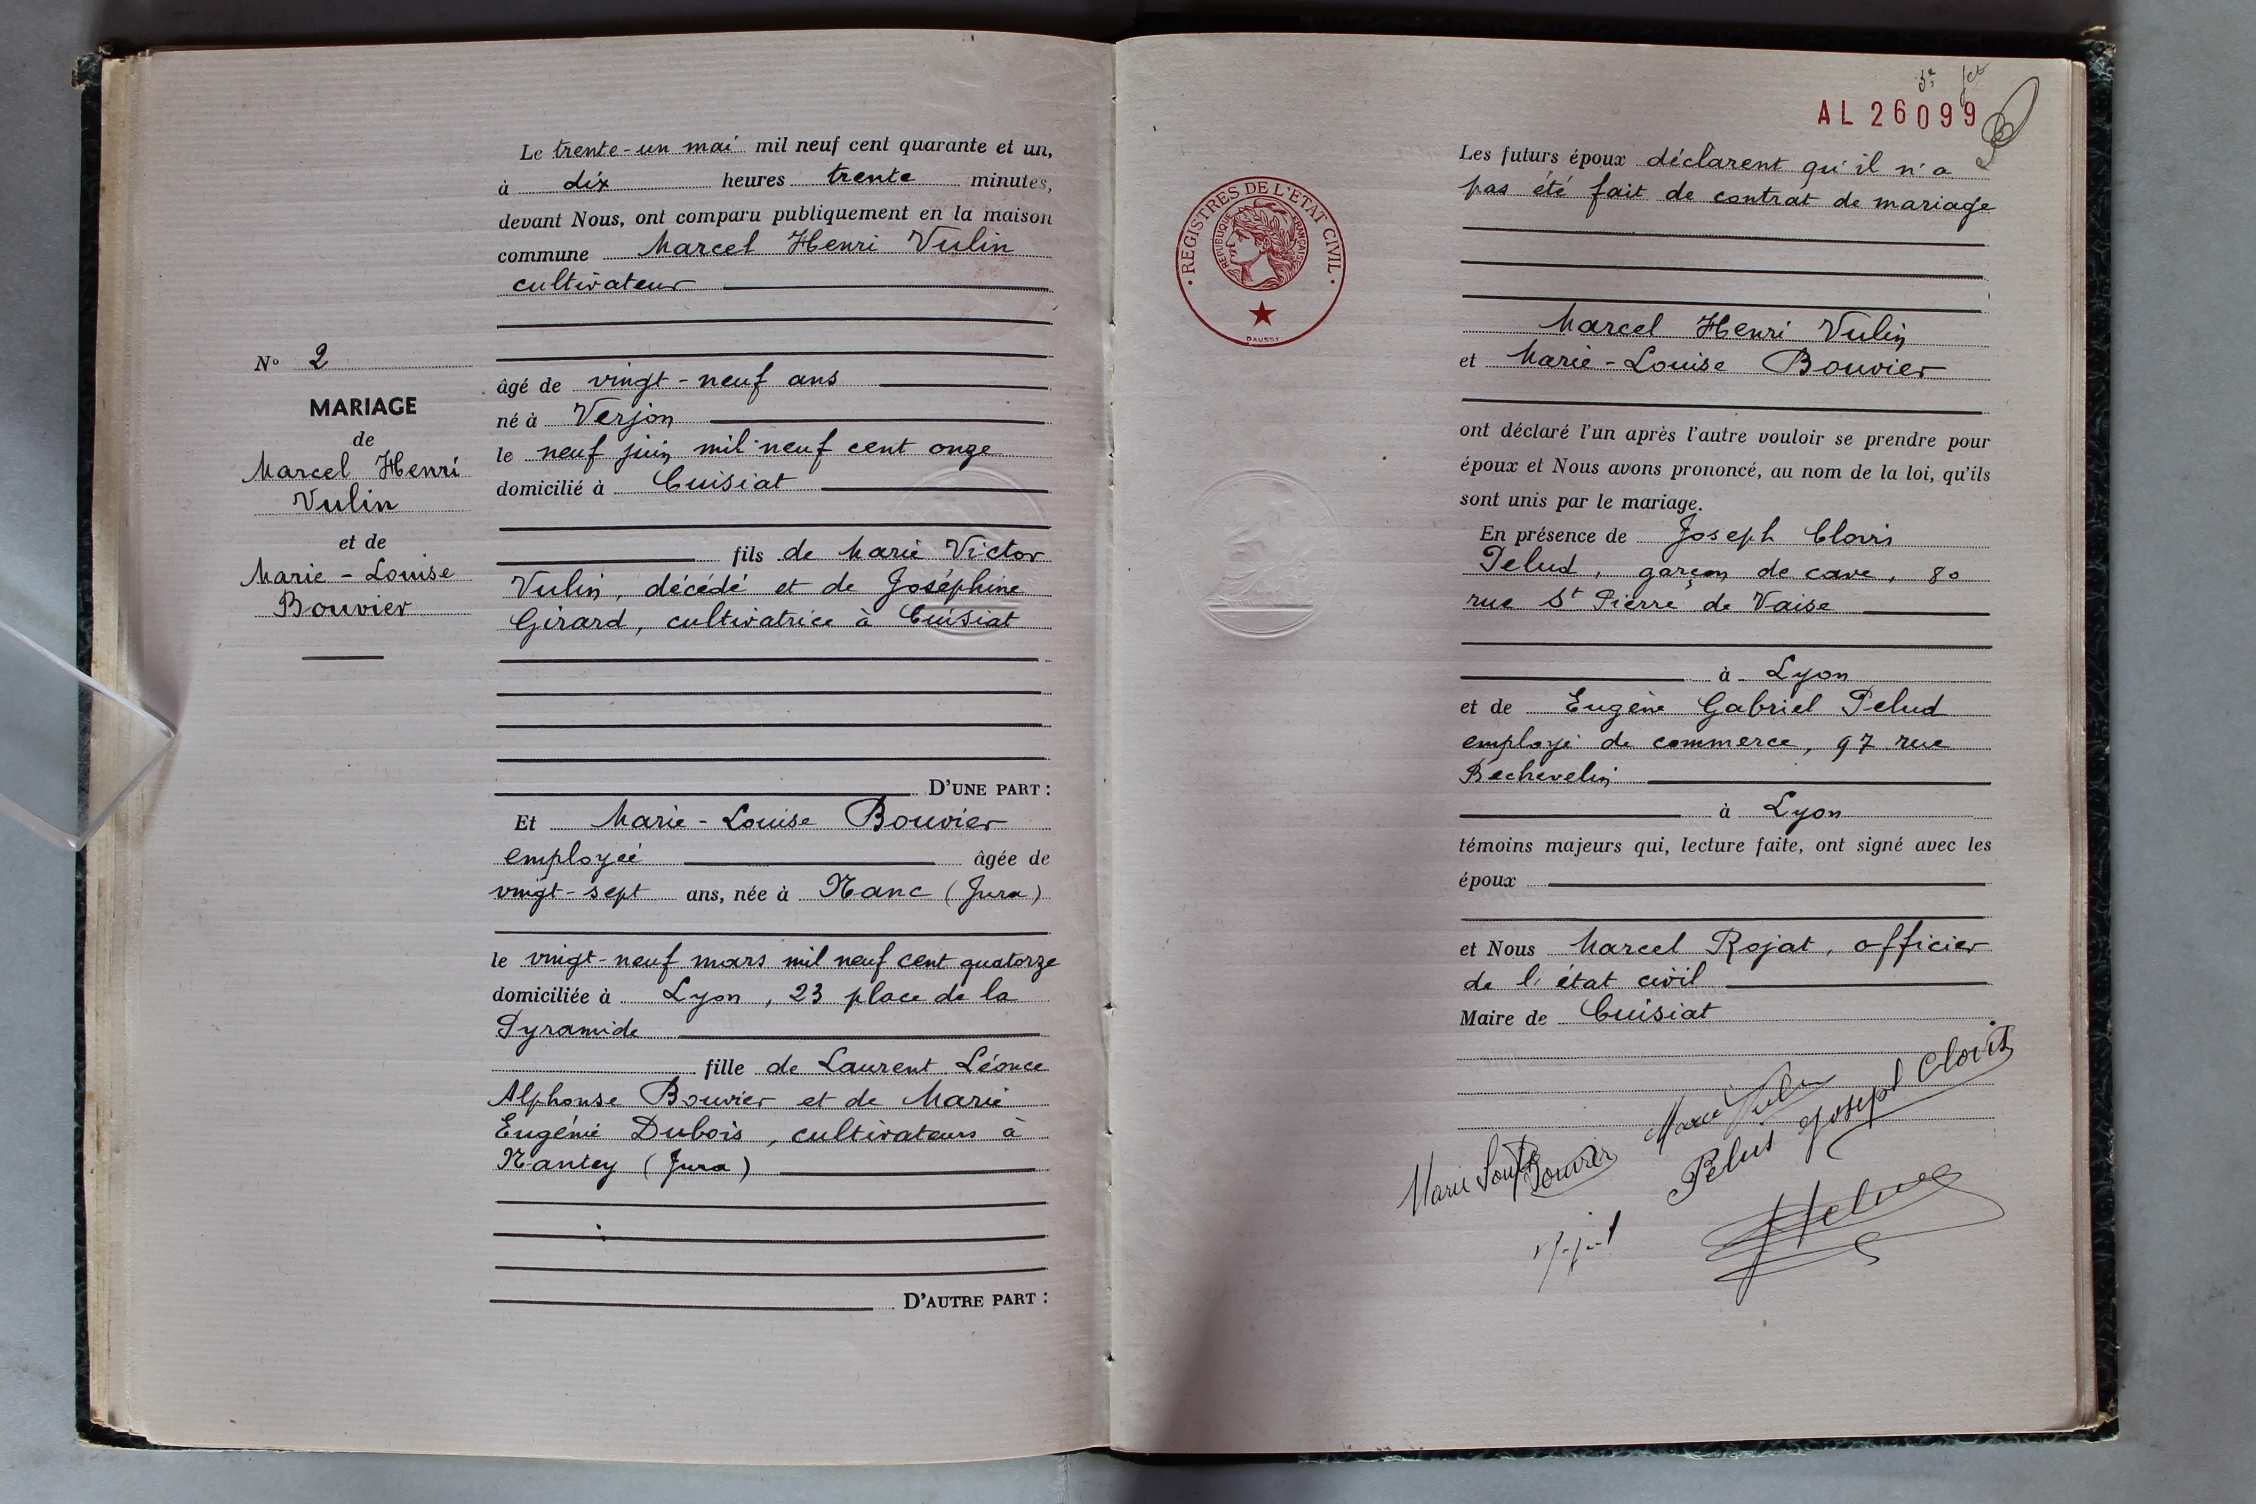 Le trente-un mai mil neuf cent quarante et un,
à dix heures trente minutes,
devant Nous, ont comparu publiquement en la maison
commune Marcel Henri Vulin
cultivateur
N° 2
MARIAGE
de
Marcel Henri
Vulin
et de
Marie-Louise
Bouvier
âgé de vingt-neuf ans
né à Verjon
le neuf juin mil neuf cent onze
domicilié à Cuisiat
fils de Marie Victor
Vulin, décédé et de Joséphine
Girard, cultivatrice à Cuisiat
D'UNE PART :
Et Marie-Louise Bouvier
employée âgée de
vingt-sept ans, née à Nanc (Jura)
le vingt-neuf mars mil neuf cent quatorze
domiciliée à Lyon, 23 place de la
Pyramide
fille de Laurent Léonce
Alphonse Bouvier et de Marie
Eugénie Dubois, cultivateurs à
Nantey (Jura)
D'AUTRE PART :
3e fet
AL 26099
REGISTRES DE L'ETAT CIVIL
REPUBLIQUE FRANÇAISE
DAUSSY
Les futurs époux déclarent qu'il n'a
pas été fait de contrat de mariage
Marcel Henri Vulin
et Marie-Louise Bouvier
ont déclaré l'un après l'autre vouloir se prendre pour
époux et Nous avons prononcé, au nom de la loi, qu'ils
sont unis par le mariage.
En présence de Joseph Clovis
Pelud, garçon de cave, 80
rue St Pierre de Vaise
à Lyon
et de Eugène Gabriel Pelud
employé de commerce, 97 rue
Béchevelin
à Lyon
témoins majeurs qui, lecture faite, ont signé avec les
époux
et Nous Marcel Rojat, officier
de l'état civil
Maire de Cuisiat
Marcel Vulin
Pelud Joseph Clovis
Marie Louise Bouvier